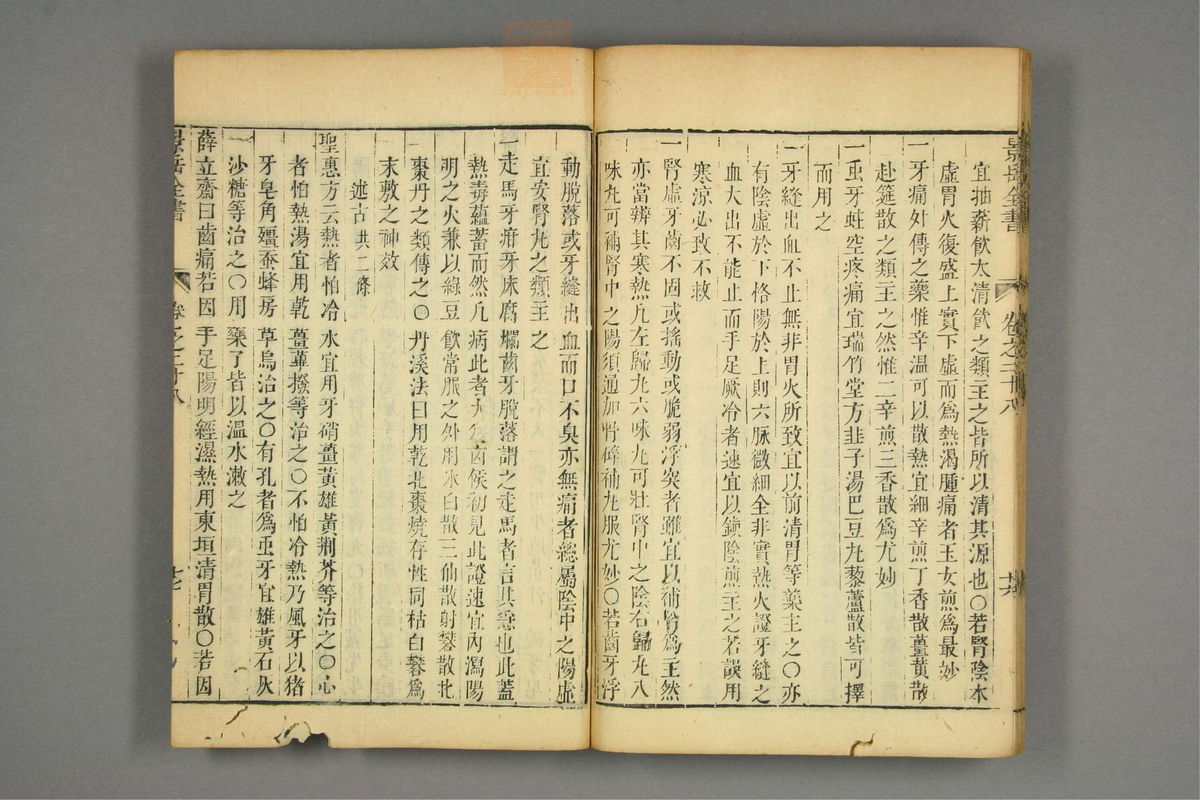 景岳全書 卷之二十八
宜抽薪飲太清飲之類主之皆所以清其源也〇若腎陰本
虛胃火復盛上實下虛而爲熱渴腫痛者玉女煎爲最妙
一牙痛外傳之藥惟辛温可以散熱宜細辛煎丁香散薑黃散
赴筵散之類主之然惟二辛煎三香散爲尤妙
一虫牙蛀空疼痛宜瑞竹堂方韭子湯巴豆丸藜蘆散皆可擇
而用之
一牙縫出血不止無非胃火所致宜以前清胃等藥主之〇亦
有陰虛於下格陽於上則六脉微細全非實熱火證牙縫之
血大出不能止而手足厥冷者速宜以鎮陰煎主之若誤用
寒涼必致不救
一腎虛牙齒不固或搖動或脆弱浮突者雖宜以補腎爲主然
亦當辨其寒熱凡左歸丸六味丸可壯腎中之陰右歸丸八
味丸可補腎中之陽須通加骨碎補丸服尤妙〇若齒牙浮
動脫落或牙縫出血而口不臭亦無痛者總屬陰中之陽虛
宜安腎丸之類主之
一走馬牙疳牙床腐爛齒牙脫落謂之走馬者言其急也此蓋
熱毒蘊蓄而然凡病此者大凶候初見此證速宜內瀉陽
明之火兼以綠豆飲常服之外用冰白散三仙散射礬散北
棗丹之類傅之〇丹溪法曰用乾北棗燒存性同枯白礬爲
末敷之神效
述古共二條
聖惠方云熱者怕冷水宜用牙硝薑黃雄黃荆芥等治之〇心
者怕熱湯宜用乾薑蓽撥等治之〇不怕冷熱乃風牙以猪
牙皂角殭蚕蜂房草烏治之〇有孔者爲虫牙宜雄黃石灰
沙糖等治之〇用藥了皆以溫水漱之
薛立齋曰齒痛若因手足陽明經濕熱用東垣清胃散〇若因
景岳全書 卷之二十八